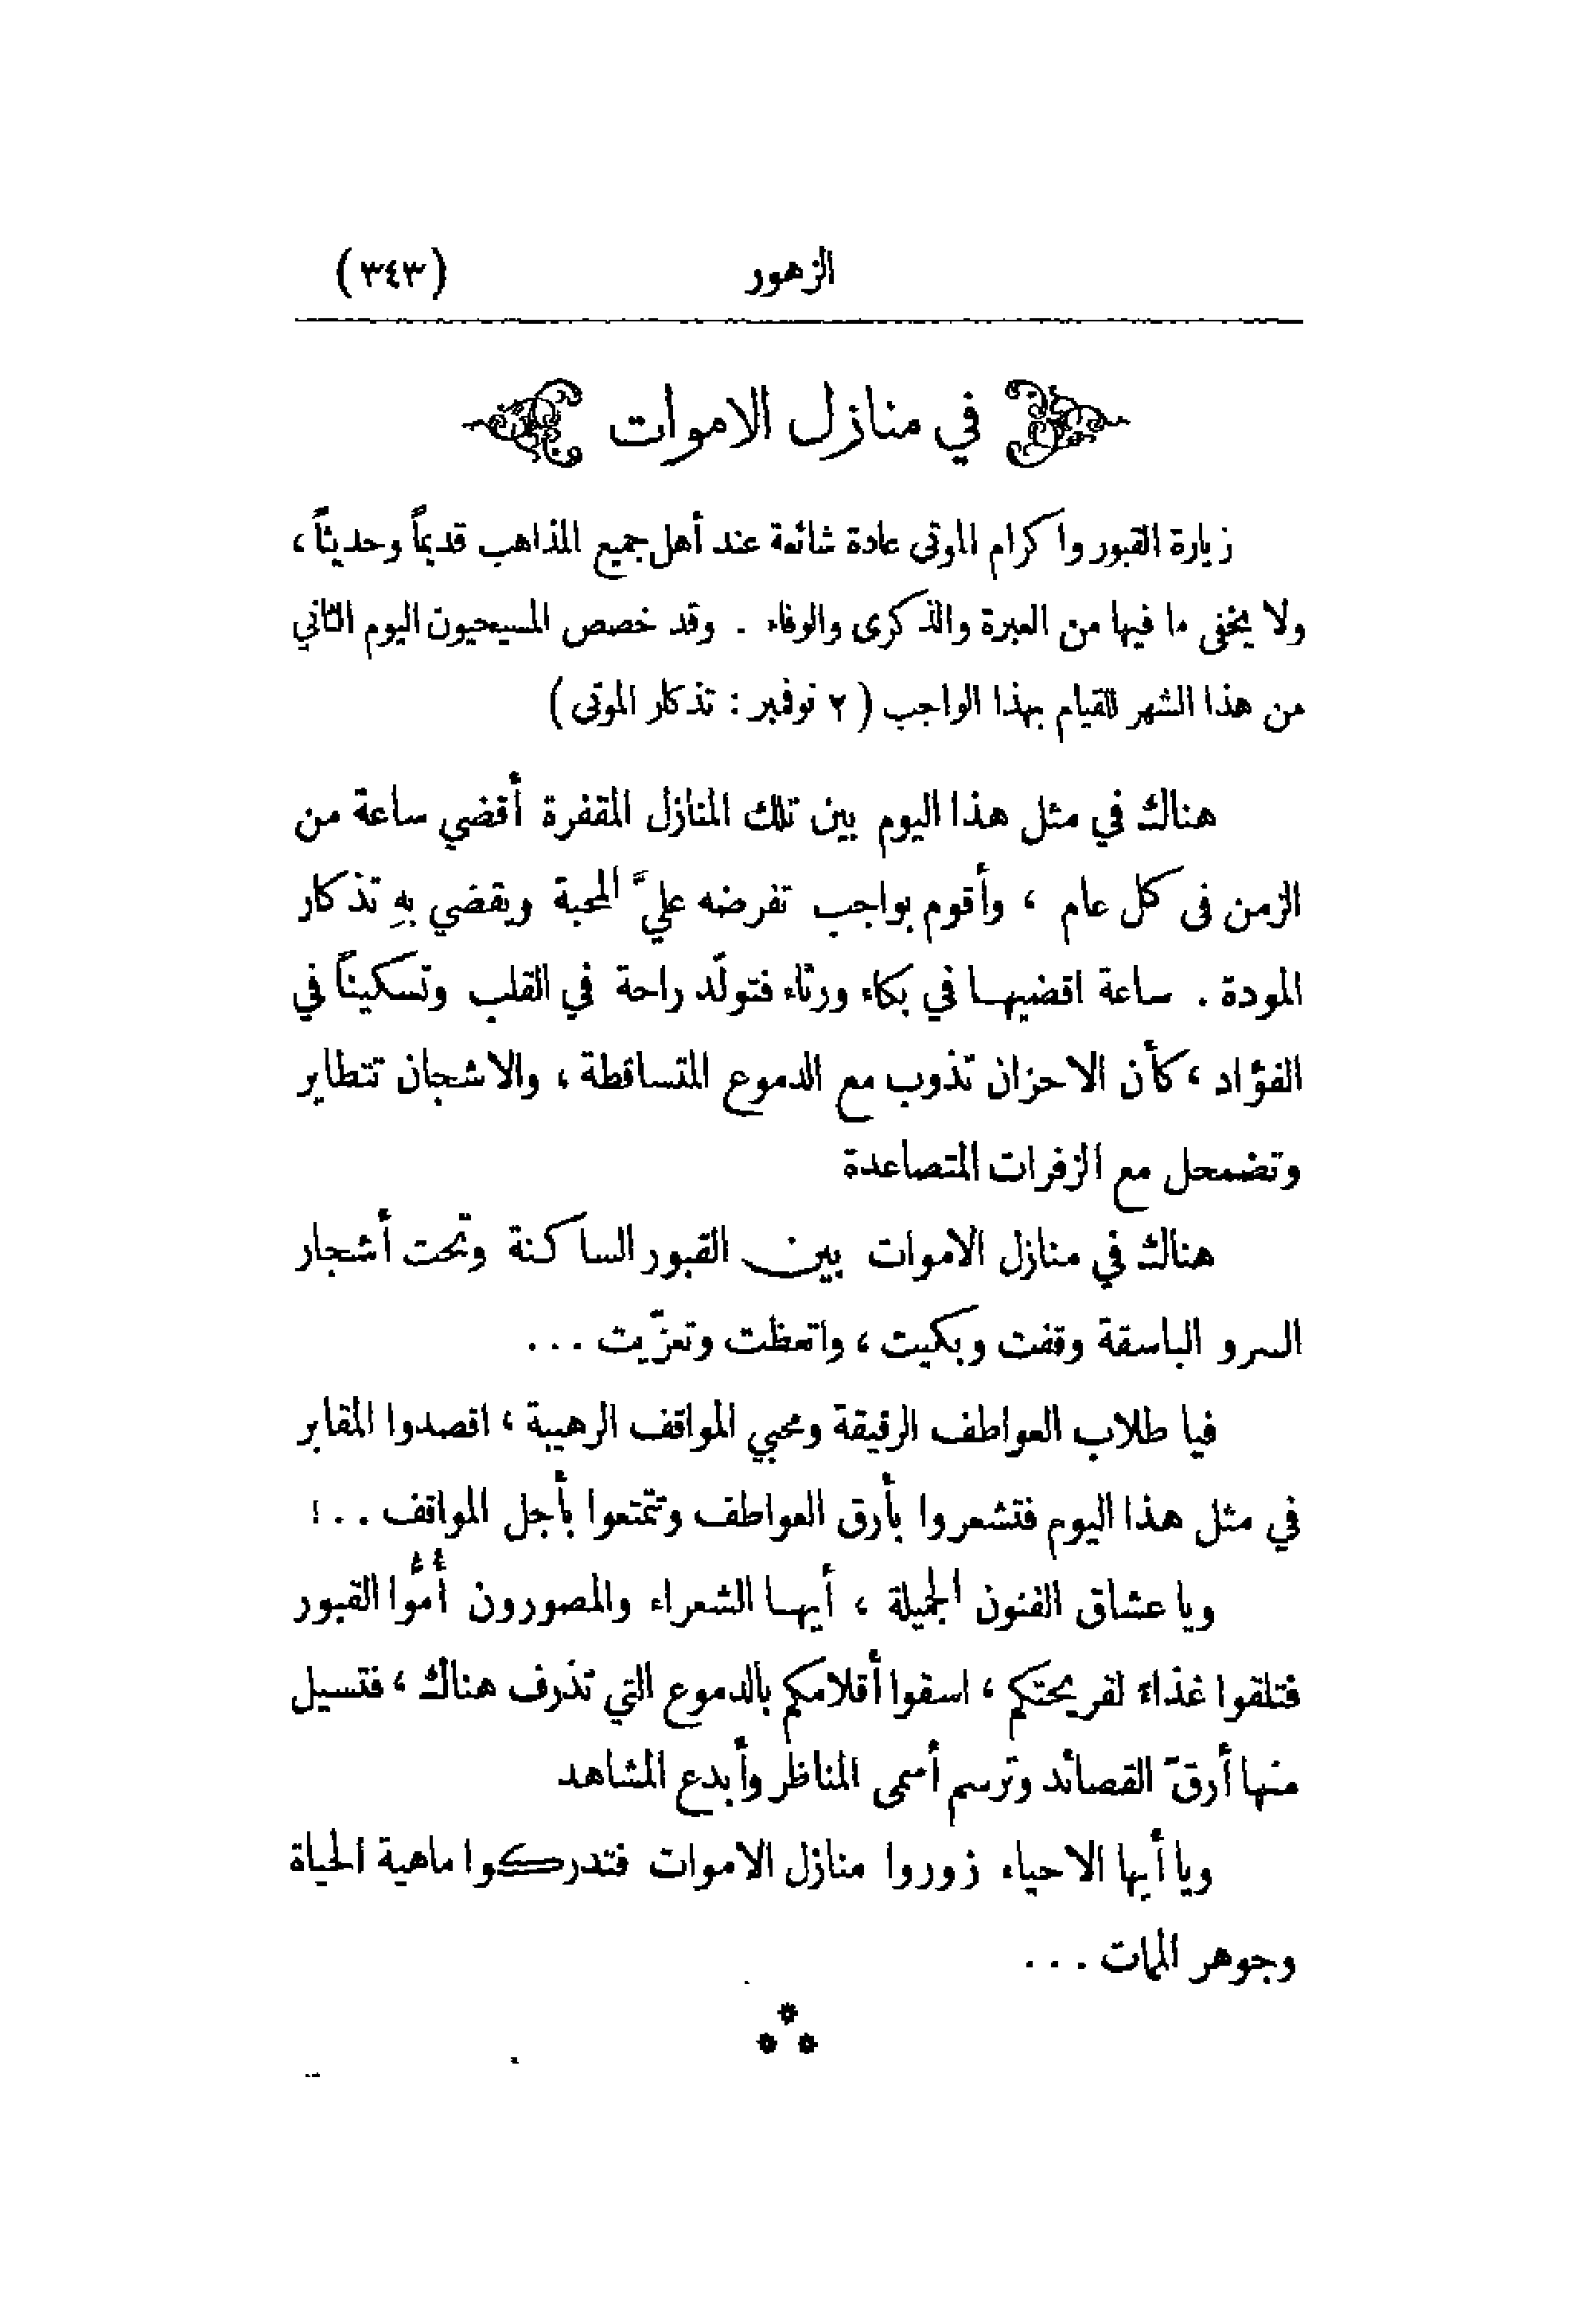 الزهور (٣٤٣)
في منازل الاموات
زيارة القبور واكرام الموتى عادة شائعة عند أهل جميع المذاهب قديماً وحديثاً ،
ولا يخفى ما فيها من العبرة والذكرى والوفاء . وقد خصص المسيحيون اليوم الثاني
من هذا الشهر للقيام بهذا الواجب ( ٢ نوفمبر : تذكار الموتى )
هناك في مثل هذا اليوم بين تلك المنازل المقفرة أقضي ساعة من
الزمن فى كل عام ، وأقوم بواجب تفرضه عليَّ المحبة ويقضي بهِ تذكار
المودة . ساعة اقضيها في بكاء ورثاء فتولّد راحة في القلب وتسكيناً في
الفؤاد ، كأن الاحزان تذوب مع الدموع المتساقطة ، والاشجان تتطاير
وتضمحل مع الزفرات المتصاعدة
هناك في منازل الاموات بين القبور الساكنة وتحت أشجار
السرو الباسقة وقفت وبكيت ، واتعظت وتعزّيت ...
فيا طلاب العواطف الرقيقة ومحبي المواقف الرهيبة ، اقصدوا المقابر
في مثل هذا اليوم فتشعروا بأرق العواطف وتتمتعوا بأجل المواقف ..!
ويا عشاق الفنون الجميلة ، أيها الشعراء والمصورون أُمُّوا القبور
فتلقوا غذاءً لقريحتكم ، اسقوا أقلامكم بالدموع التي تذرف هناك ، فتسيل
منها أرقّ القصائد وترسم أسمى المناظر وأبدع المشاهد
ويا أيها الاحياء زوروا منازل الاموات فتدركوا ماهية الحياة
وجوهر الممات ...